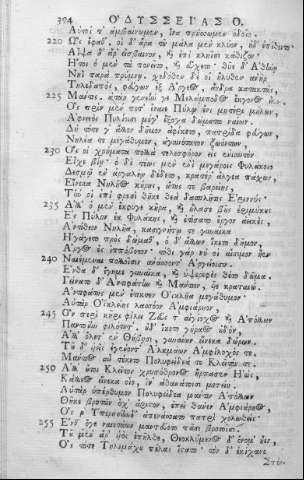 394 ΟΔΥΣΣΕΙΑΣ Ο.
Αὐτοί τ' ἀμβαίνωμεν, ἵνα πρήσσωμεν ὁδοῖο.
220 Ὣς ἔφαθ', οἱ δ' ἄρα τοῦ μάλα μὲν κλύον, ἠδ' ἐπίθοντο·
Αἶψα δ' ἄρ' εἴσβαινον, καὶ ἐπὶ κληῖσι καθῖζον.
Ἤτοι ὁ μὲν τὰ πονεῖτο, καὶ εὔχετο· θῦε δ' Ἀθήνῃ
Νηῒ παρὰ πρύμνῃ. σχεδόθεν δέ οἱ ἤλυθεν ἀνὴρ
Τηλεδαπὸς, φεύγων ἐξ Ἄργεος, ἄνδρα κατακτὰς,
225 Μάντις. ἀτὰρ γενεήν γε Μελάμποδος ἔκγονος ἦεν.
Ὃς πρὶν μέν ποτ' ἔναιε Πύλῳ ἔνι μητέρι μήλων,
Ἀφνειὸς Πυλίοισι μέγ' ἔξοχα δώματα ναίων.
Δὴ τότε γ' ἄλλον δῆμον ἀφίκετο, πατρίδα φεύγων,
Νηλέα τε μεγάθυμον, ἀγαυότατον ζωόντων,
230 Ὅς οἱ χρήματα πολλὰ τελεσφόρον εἰς ἐνιαυτὸν
Εἶχε βίῃ. ὁ δὲ τέως μὲν ἐνὶ μεγάροις Φυλάκοιο
Δεσμῷ ἐν ἀργαλέῳ δέδετο, κρατέρ' ἄλγεα πάσχων,
Εἵνεκα Νηλῆος κούρης, ἄτης τε βαρείης,
Τήν οἱ ἐπὶ φρεσὶ θῆκε θεὰ δασπλῆτις Ἐριννύς.
235 Ἀλλ' ὁ μὲν ἔκφυγε κῆρα, καὶ ἤλασε βοῦς ἐριμύκους
Ἐς Πύλον ἐκ Φυλάκης, καὶ ἐτίσατο ἔργον ἀεικὲς
Ἀντίθεον Νηλῆα, κασιγνήτῳ τε γυναῖκα
Ἠγάγετο πρὸς δώμαθ', ὁ δ' ἄλλων ἵκετο δῆμον,
Ἄργος ἐς ἱππόβοτον· τόθι γάρ νύ οἱ αἴσιμον ἦεν
240 Ναιέμεναι πολλοῖσιν ἀνάσσοντ' Ἀργείοισιν.
Ἔνθα δ' ἔγημε γυναῖκα, καὶ ὑψερεφὲς θέτο δῶμα.
Γείνατο δ' Ἀντιφάτην καὶ Μάντιον, υἷε κραταιώ.
Ἀντιφάτης μὲν ἔτικτεν Ὀϊκλῆα μεγάθυμον·
Αὐτὰρ Ὀϊκλῆος λαοσσόον Ἀμφιάραον,
245 Ὃν περὶ κῆρι φίλει Ζεύς τ' αἰγίοχος καὶ Ἀπόλλων
Παντοίην φιλότητ'. οὐδ' ἵκετο γήραος οὐδὸν,
Ἀλλ' ὄλετ' ἐν Θήβῃσι, γυναίων εἵνεκα δώρων.
Τοῦ δ' υἱεῖς ἐγένοντ' Ἀλκμαίων Ἀμφίλοχός τε.
Μάντιος αὖ τέκετο Πολυφείδεά τε Κλεῖτόν τε.
250 Ἀλλ' ἤτοι Κλεῖτον χρυσόθρονος ἥρπασεν Ἠὼς,
Κάλλεος εἵνεκα οἷο, ἵν' ἀθανάτοισι μετείη.
Αὐτὰρ ὑπέρθυμον Πολυφείδεα μάντιν Ἀπόλλων
Θῆκε βροτῶν ὄχ' ἄριστον, ἐπεὶ θάνεν Ἀμφιάραος,
Ὅς ῥ' Ὑπερησίηνδ' ἀπενάσσατο πατρὶ χολωθείς·
255 Ἔνθ' ὅγε ναιετάων μαντεύετο πᾶσι βροτοῖσι.
Τοῦ μὲν ἄρ' υἱὸς ἐπῆλθε, Θεοκλύμενος δ' ὄνομ' ἦεν,
Ὃς τότε Τηλεμάχου πέλας ἵστατο· τὸν δ' ἐκίχανε
Σπέν-